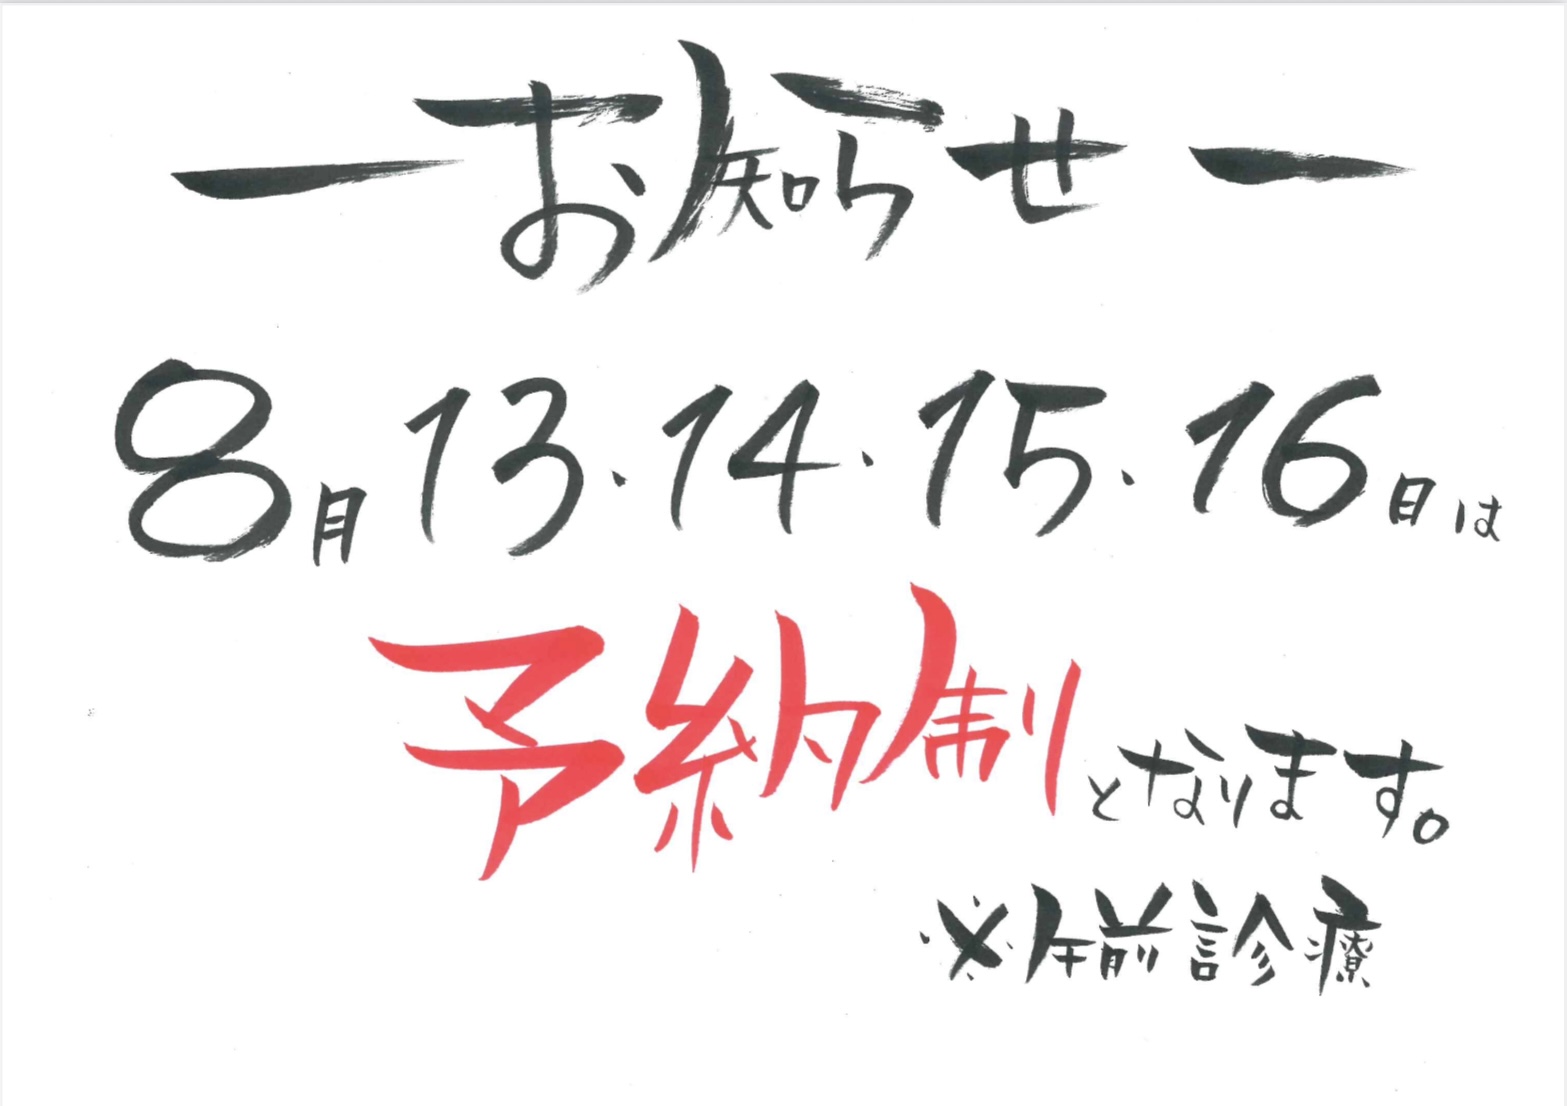 ―お知らせ―
8月13・14・15・16日は
予約制となります。
※午前診療